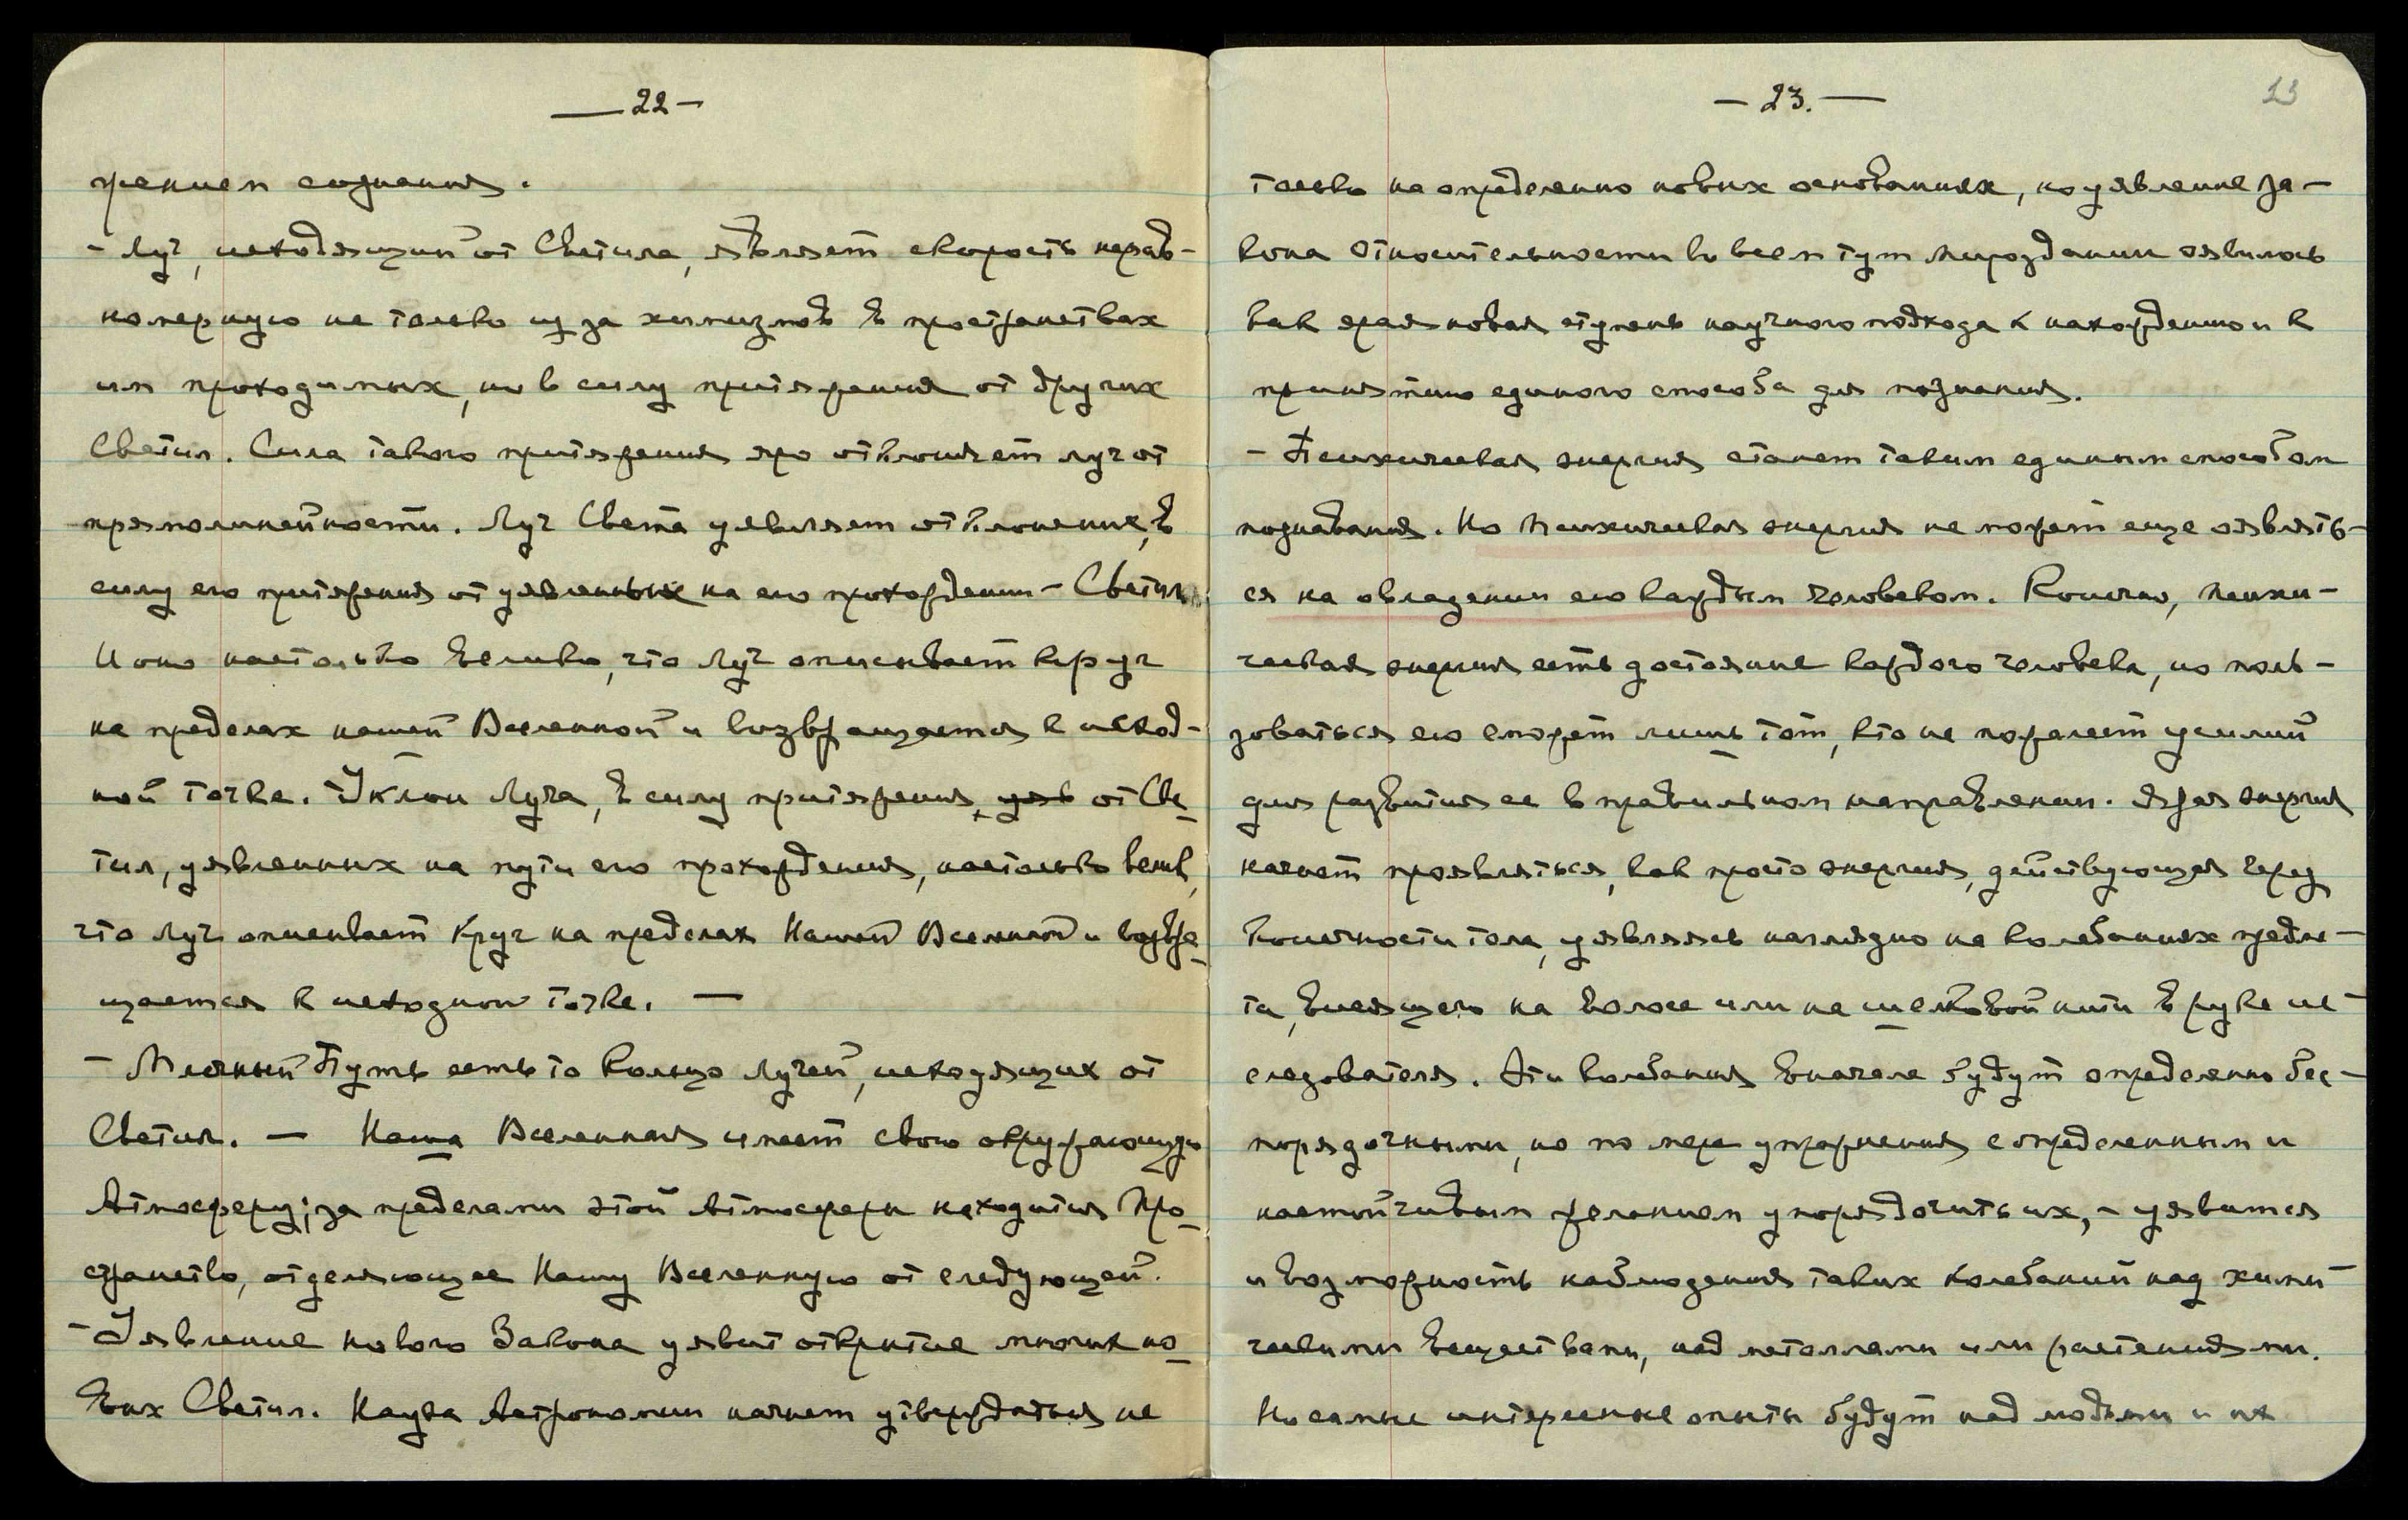 — 22 —
рением сознания.
- Луч, исходящий от Светила, являет скорость нерав-
номерную не только из за химизмов в пространствах
им проходимых, но в силу притяжения от других
Светил. Сила такого притяжения яро отклоняет луч от
прямолинейности. Луч Света уявляет отклонения, в
силу его притяжения от уявленных на его прохождении - Светил.
И оно настолько велико, что Луч описывает круг
на пределах нашей Вселенной и возвращается к исход-
ной точке. Уклон Луча, в силу притяжения, уяв от Све-
тил, уявленных на пути его прохождения, настолько велик,
что Луч описывает Круг на пределах Нашей Вселенной и возвра-
щается к исходной точке. —
- Млечный Путь есть то Кольцо Лучей, исходящих от
Светил. — Наша Вселенная имеет свою окружающую
Атмосферу; за пределами этой Атмосферы находится Про-
странство, отделяющее Нашу Вселенную от следующей.
- Уявление нового Закона уявит открытие многих но-
вых Светил. Наука Астрономии начнет утверждаться не
— 23. —
23
только на определенно новых основаниях, но уявление за-
кона Относительности во всем тут Мироздании оявилось
как ярая новая ступень научного подхода к нахождению и к
принятию единого способа для познания.
- Психическая энергия станет таким единым способом
познавания. Но психическая энергия не может еще оявлять-
ся на овладении ею каждым человеком. Конечно, психи-
ческая энергия есть достояние каждого человека, но поль-
зоваться ею сможет лишь тот, кто не пожалеет усилий
для развития ее в правильном направлении. Ярая энергия
начнет проявляться, как просто энергия, действующая через
конечности тела, уявляясь наглядно на колебаниях предме-
та, висящего на волосе или на шелковой нити в руке ис-
следователя. Эти колебания вначале будут определенно бес-
порядочными, но по мере упражнения с определенным и
настойчивым желанием упорядочить их, - уявится
и возможность наблюдения таких колебаний над хими-
ческими веществами, над металлами или растениями.
Но самые интересные опыты будут над людьми и их